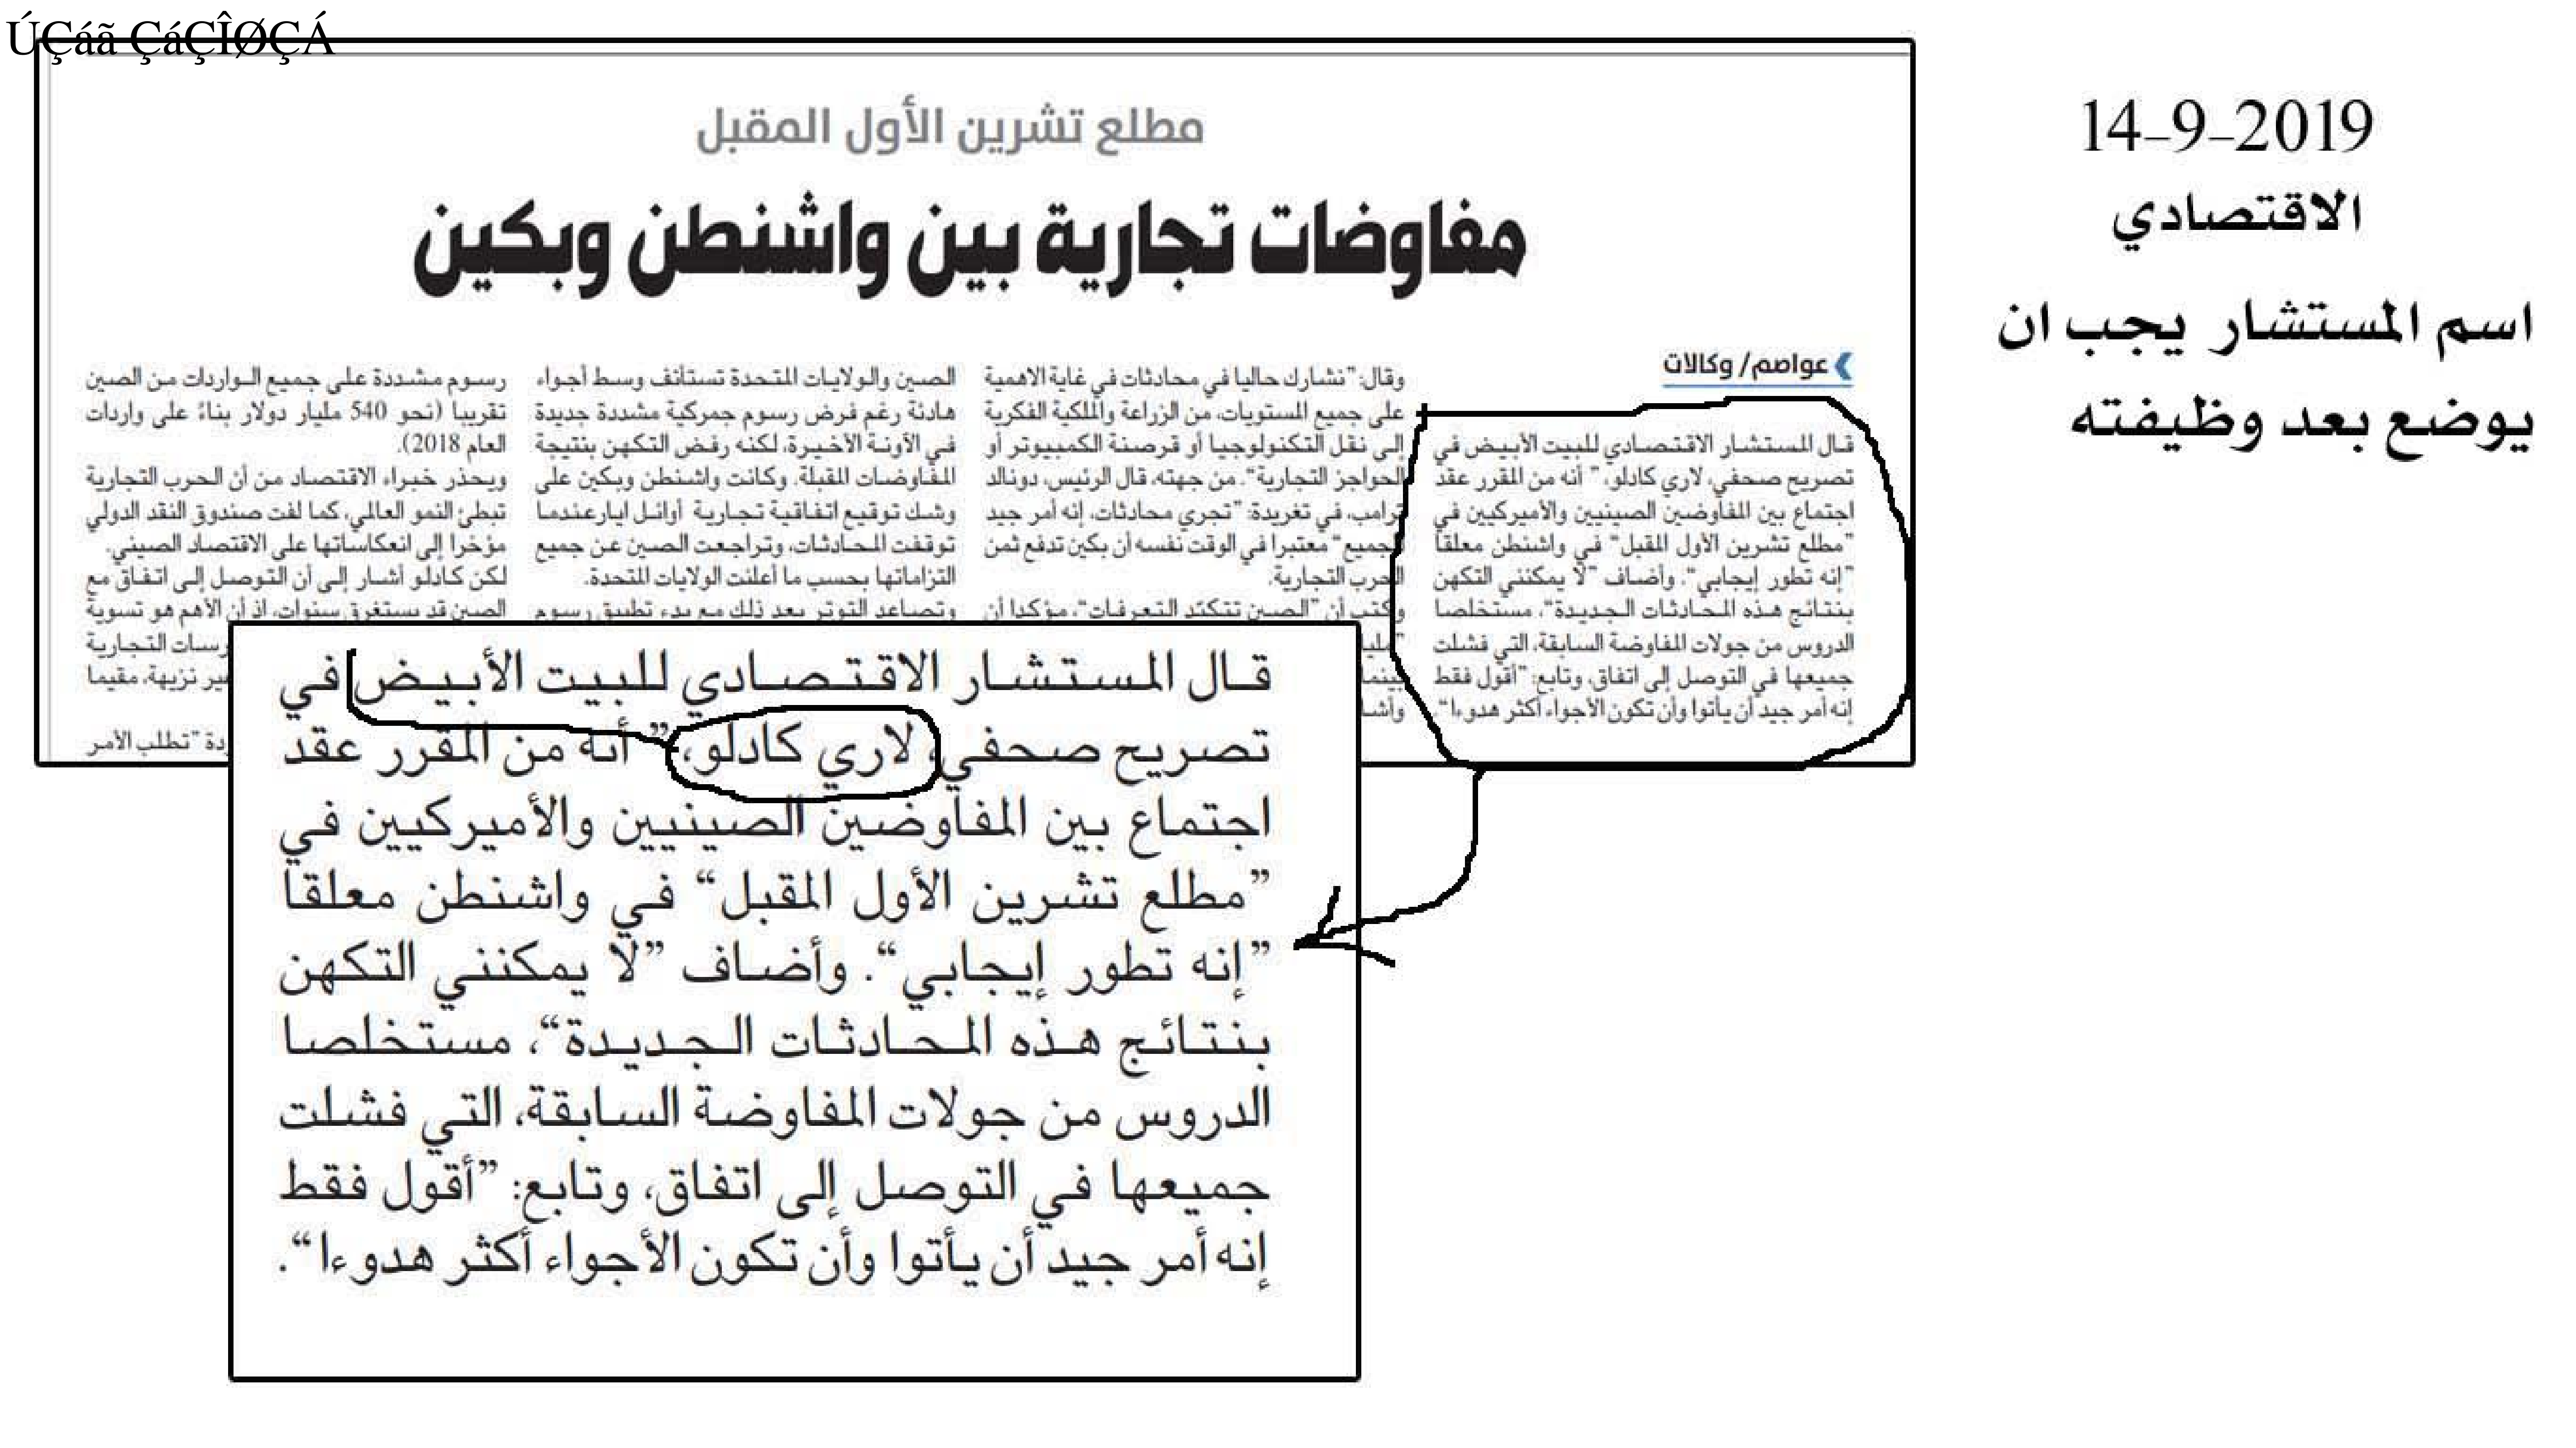 ÚÇáã ÇáÇÎØÇÁ
14-9-2019
الاقتصادي
اسم المستشار يجب ان
يوضع بعد وظيفته
مطلع تشرين الأول المقبل
مفاوضات تجارية بين واشنطن وبكين
عواصم/ وكالات
قال المستشار الاقتصادي للبيت الأبيض في
تصريح صحفي، لاري كادلو، ” أنه من المقرر عقد
اجتماع بين المفاوضين الصينيين والأميركيين في
”مطلع تشرين الأول المقبل“ في واشنطن معلقا
”إنه تطور إيجابي“. وأضاف ”لا يمكنني التكهن
بنتائج هذه المحادثات الجديدة“، مستخلصا
الدروس من جولات المفاوضة السابقة، التي فشلت
جميعها في التوصل إلى اتفاق، وتابع: ”أقول فقط
إنه أمر جيد أن يأتوا وأن تكون الأجواء أكثر هدوءا“.
وقال: ”نشارك حاليا في محادثات في غاية الاهمية
على جميع المستويات، من الزراعة والملكية الفكرية
إلى نقل التكنولوجيا أو قرصنة الكمبيوتر أو
الحواجز التجارية“. من جهته، قال الرئيس، دونالد
ترامب، في تغريدة: ”تجري محادثات، إنه أمر جيد
للجميع“ معتبرا في الوقت نفسه أن بكين تدفع ثمن
الحرب التجارية.
وكتب أن ”الصين تتكبد التعرفات“، مؤكدا أن
بينما
الصين والولايات المتحدة تستأنف وسط أجواء
هادئة رغم فرض رسوم جمركية مشددة جديدة
في الآونة الأخيرة، لكنه رفض التكهن بنتيجة
المفاوضات المقبلة. وكانت واشنطن وبكين على
وشك توقيع اتفاقية تجارية أوائل ايارعندما
توقفت المحادثات، وتراجعت الصين عن جميع
التزاماتها بحسب ما أعلنت الولايات المتحدة.
وتصاعد التوتر بعد ذلك مع بدء تطبيق رسوم
رسوم مشددة على جميع الواردات من الصين
تقريبا (نحو 540 مليار دولار بناءً على واردات
العام 2018).
ويحذر خبراء الاقتصاد من أن الحرب التجارية
تبطئ النمو العالمي، كما لفت صندوق النقد الدولي
مؤخرا إلى انعكاساتها على الاقتصاد الصيني.
لكن كادلو أشار إلى أن التوصل إلى اتفاق مع
الصين قد يستغرق سنوات، اذ أن الأهم هو تسوية
التجارية
نزيهة، مقيما
”تطلب الأمر
قال المستشار الاقتصادي للبيت الأبيض في
تصريح صحفي، لاري كادلو، ” أنه من المقرر عقد
اجتماع بين المفاوضين الصينيين والأميركيين في
”مطلع تشرين الأول المقبل“ في واشنطن معلقا
”إنه تطور إيجابي“. وأضاف ”لا يمكنني التكهن
بنتائج هذه المحادثات الجديدة“، مستخلصا
الدروس من جولات المفاوضة السابقة، التي فشلت
جميعها في التوصل إلى اتفاق، وتابع: ”أقول فقط
إنه أمر جيد أن يأتوا وأن تكون الأجواء أكثر هدوءا“.